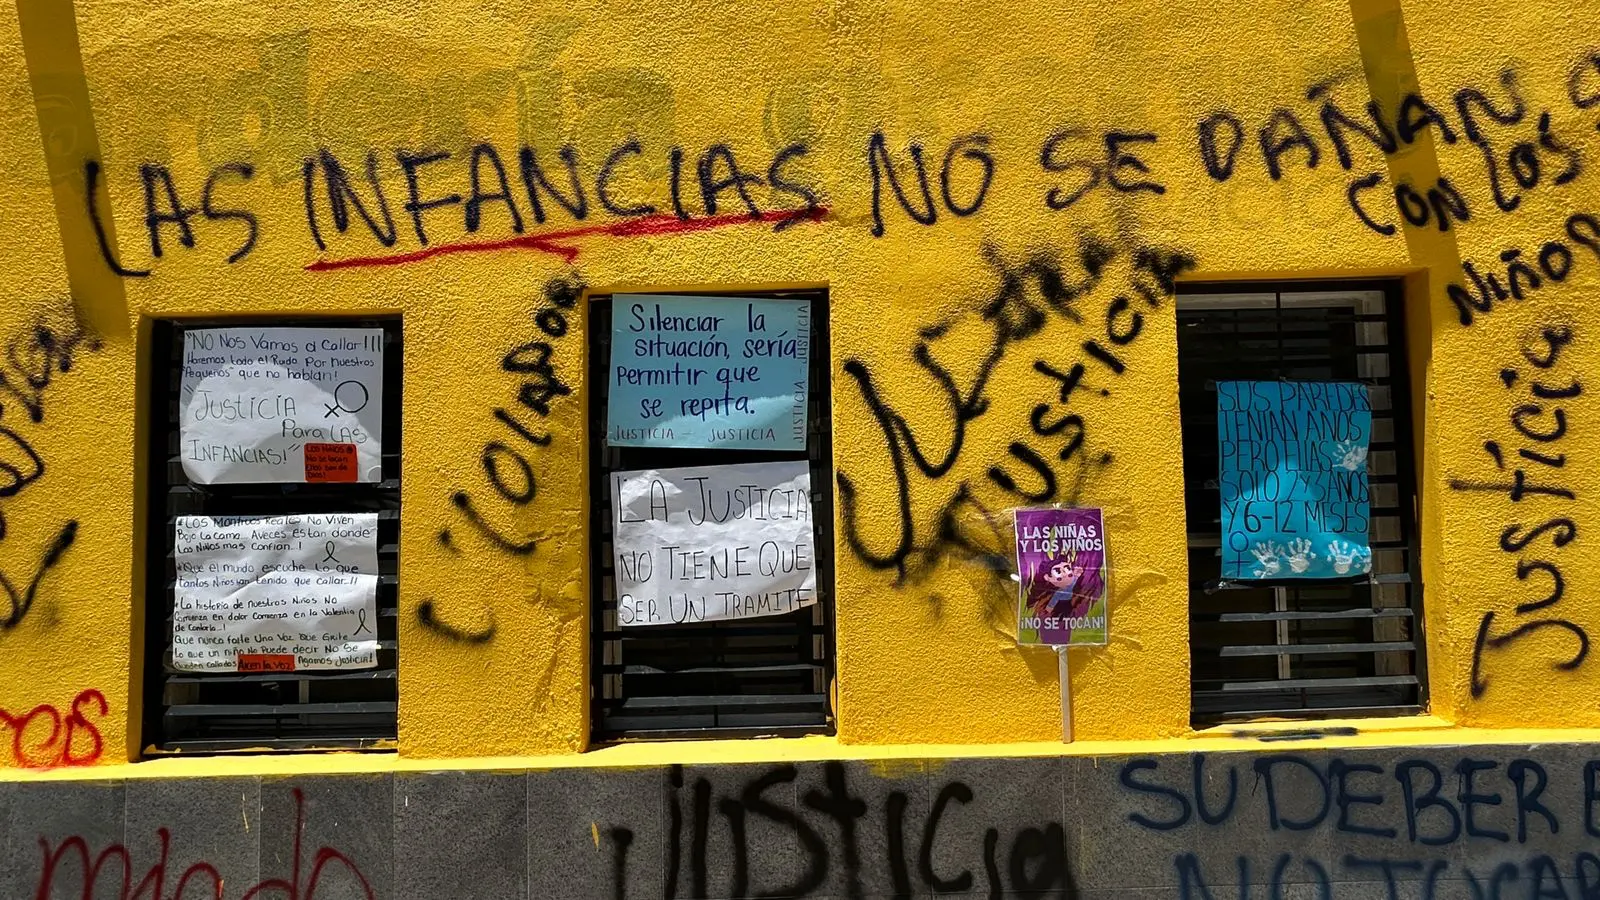 LAS INFANCIAS NO SE DAÑAN
CON LOS
NIÑO
¡VIOLADOR!
JUSTICIA
Justicia
"NO NOS Vamos a Callar!!!
Haremos todo el Ruido Por Nuestros
"Pequeños" que no hablan!
"JUSTICIA
Para LAS
INFANCIAS!"
LOS NIÑOS
No se tocan
Silenciar la
situación, sería
permitir que
se repita.
JUSTICIA - JUSTICIA
JUSTICIA - JUSTICIA
LA JUSTICIA
NO TIENE QUE
SER UN TRAMITE
SUS PAREDES
TENIAN AÑOS
PERO ELLAS
SOLO 2 Y 3 AÑOS
Y 6-12 MESES
LAS NIÑAS
Y LOS NIÑOS
¡NO SE TOCAN!
*LOS Monstruos Reales No Viven
Bajo La cama... Aveces estan donde
Los Niños mas Confian..!
*Que el mundo escuche Lo que
tantos Niños han tenido que Callar..!!
*La historia de nuestros Niños NO
Comienza en dolor Comienza en la Valentia
de Contarla..!
Que nunca falte Una Voz Que Grite
Lo que un niño No Puede decir No Se
Queden callados Alcen la voz Hagamos Justicia!
miedo
justicia
SU DEBER E
NO TOCAR